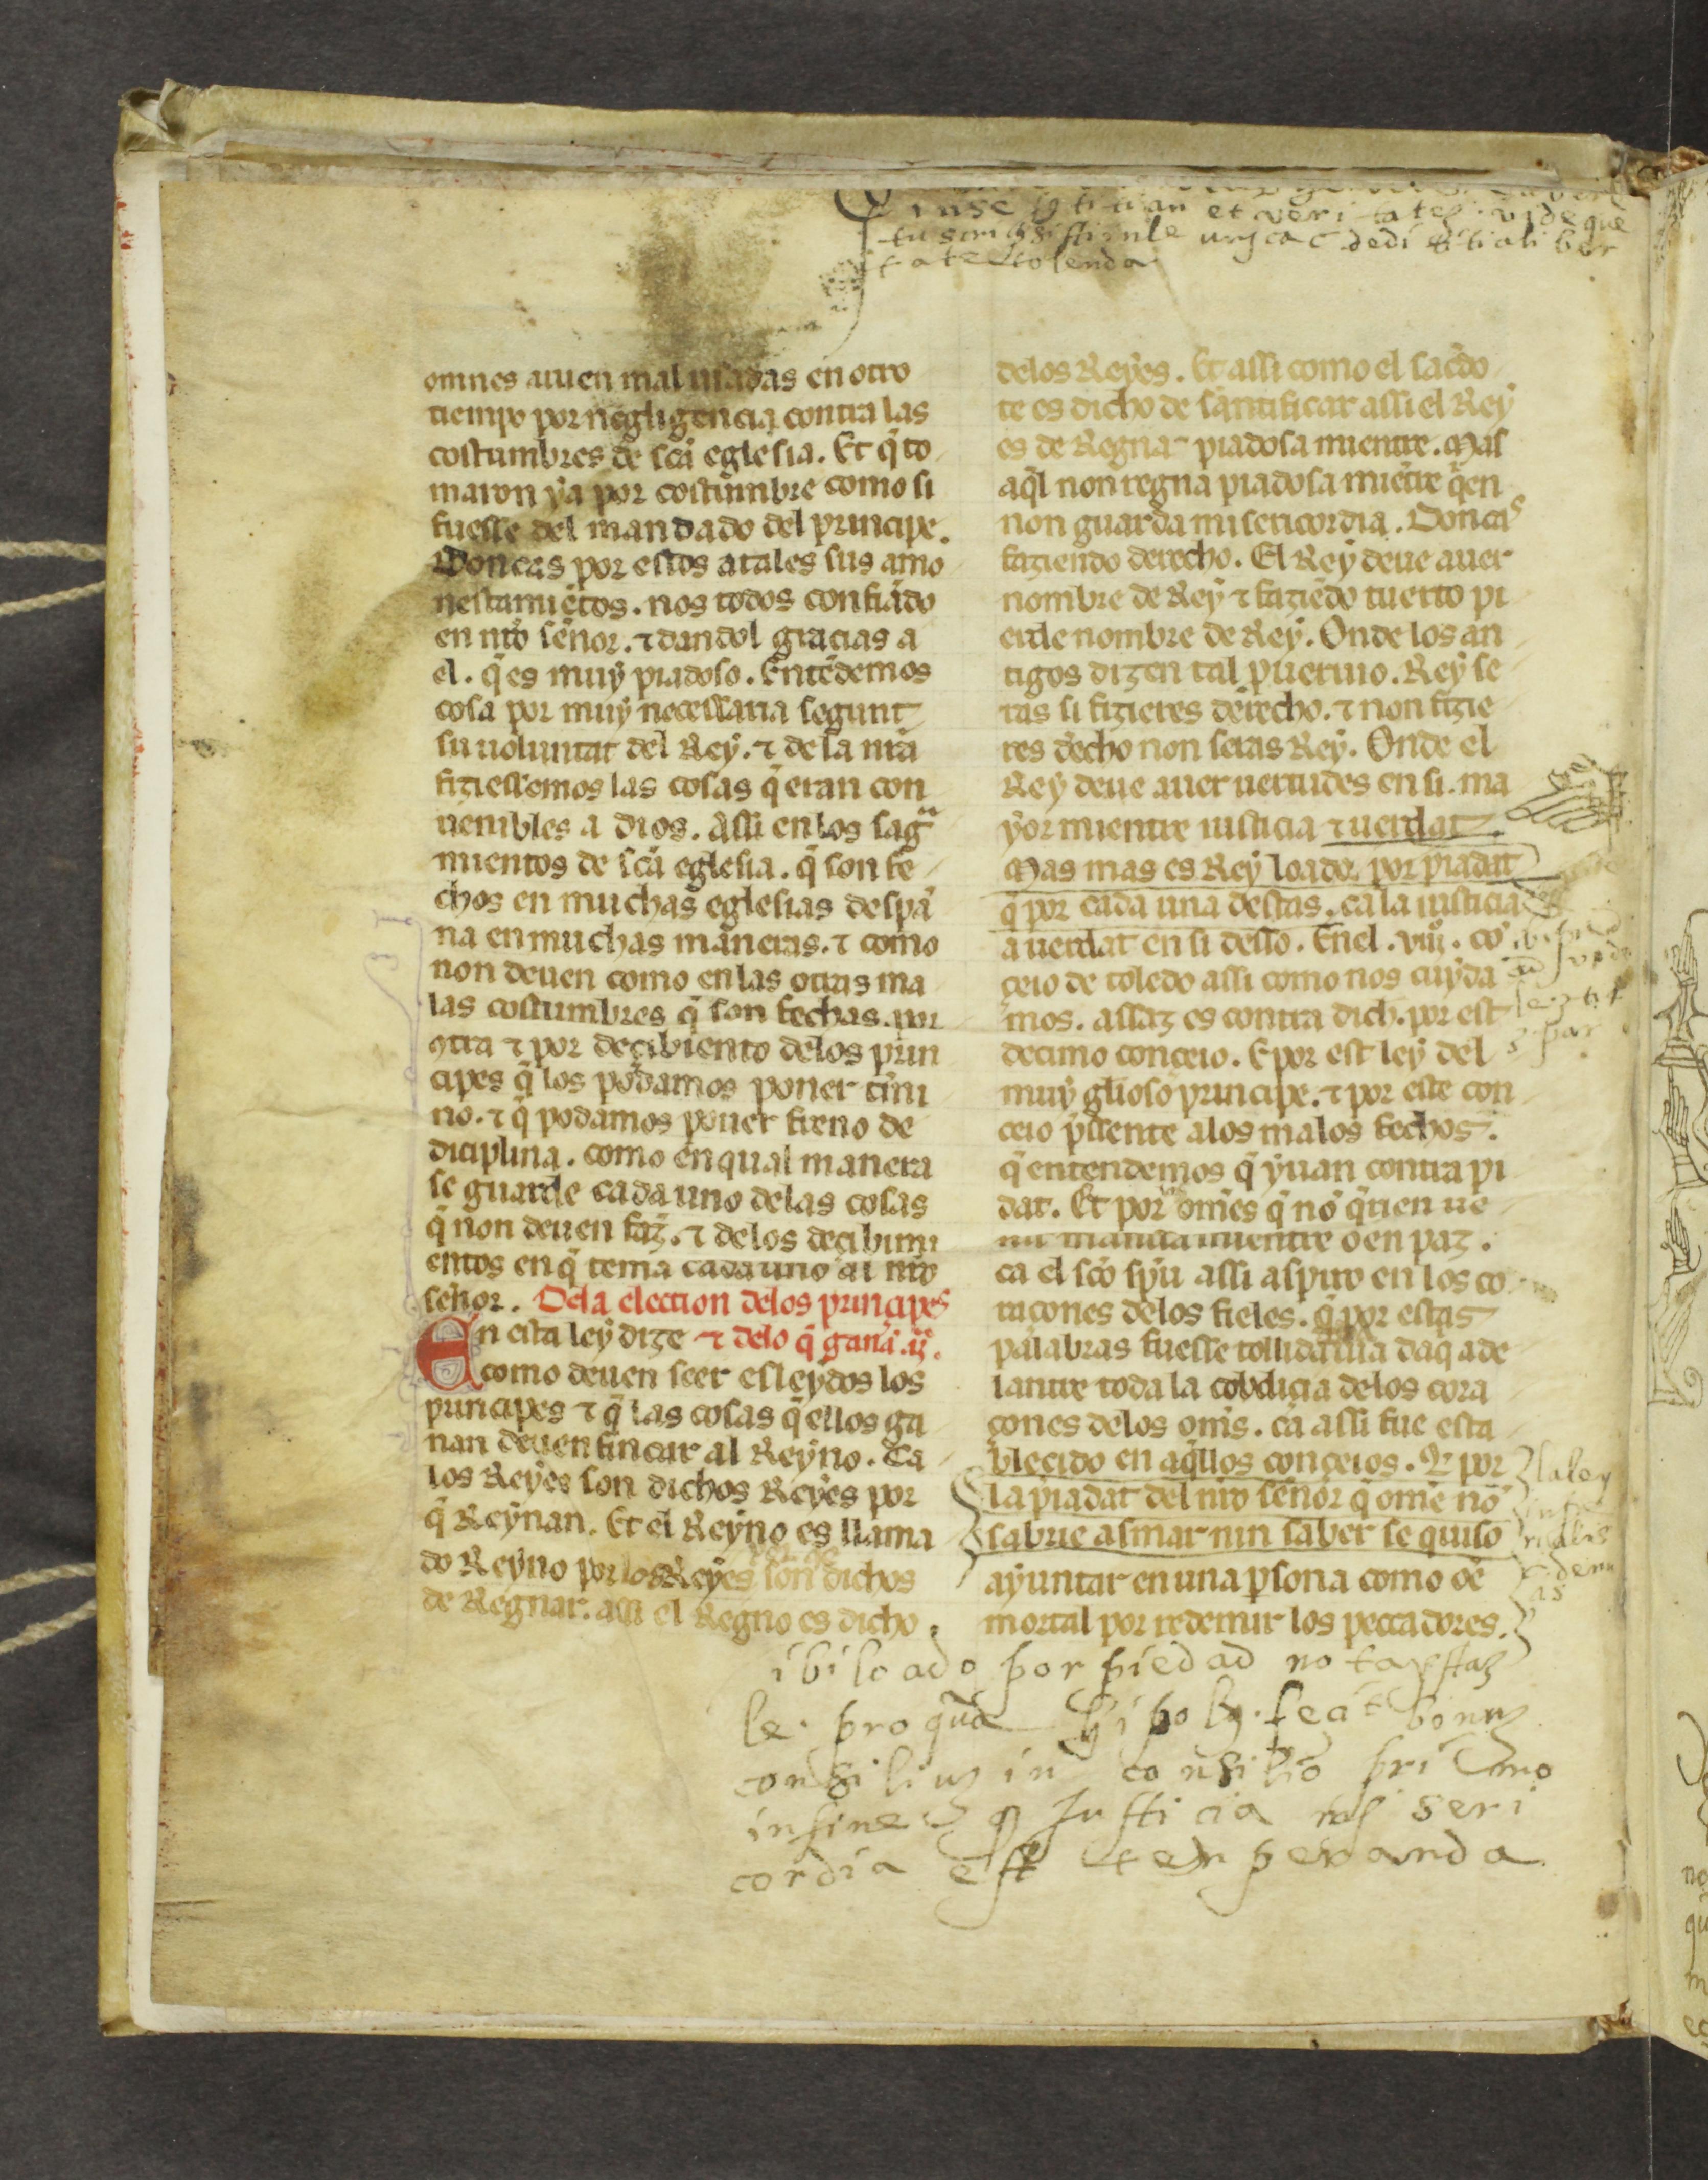 inse iustitian et veritatem vide que
tate tolenda
omnes auuen mal usadas en otro
tiempo por negligencia contra las
costumbres de scã eglesia. Et q̃ to
maron ẏa por costumbre como si
fuesse del mandado del principe.
Doncas por estos atales sus amo
nestamiẽtos. nos todos confiãdo
en nr̃o señor. ⁊ dandol gracias a
el. q̃ es muẏ piadoso. Entẽdemos
cosa por muẏ necessaria segunt
su uoluntat del Reẏ. ⁊ de la nr̃a
fiziessemos las cosas q̃ eran con
uenibles a dios. Assi en los sagᵃ
mientos de scã eglesia. q̃ son fe
chos en muchas eglesias despã
na en muchas maneras. ⁊ como
non deuen como en las otras ma
las costumbres q̃ son fechas. por
ꝯtra ⁊ por decibiento delos prin
cipes q̃ los podamos poner tmi
no. ⁊ q̃ podamos poner freno de
diciplina. como en qual manera
se guarde cada uno delas cosas
q̃ non deuen faz̃. ⁊ delos decibimi
entos en q̃ tenia cada uno al nr̃o
señor. Dela election delos principes
En esta leẏ dize ⁊ delo q̃ ganã .ij.
como deuen seer esleẏdos los
principes ⁊ q̃ las cosas q̃ ellos ga
nan deuen fincar al Reẏno. Ca
los Reẏes son dichos Reẏes por
q̃ Reẏnan. Et el Reẏno es llama
do Reẏno por los Reẏes son dichos
de Regnar. assi el Regno es dicho
delos Reẏes. Et assi como el sac̃do
te es dicho de santificar assi el Reẏ
es de Regnar piadosa mientre. Mas
aq̃l non regna piadosa miẽtre q̃en
non guarda misericordia. Doncas
faziendo derecho. El Reẏ deue auer
nombre de Reẏ ⁊ faziẽdo tuerto pi
erde nombre de Reẏ. Onde los an
tigos dizen tal proueruio. Reẏ se
ras si fizieres derecho. ⁊ non fizie
res d̃echo non seras Reẏ. Onde el
Reẏ deue auer uertudes en si. ma
ẏor mientre iusticia ⁊ uerdat
Mas mas es Reẏ loado. por piadat
q̃ por cada una destas. ca la iusticia
a uerdat en si desso. En el .viij. cõ
ceio de toledo assi como nos cuẏda
mos. assaz es contra dich. por est
decimo conceio. E por est leẏ del
muẏ glioso principe. ⁊ por este con
ceio p̃sente alos malos fechos.
q̃ entendemos q̃ ẏuan contra pi
dat. Et por om̃es q̃ nõ q̃rien ue
nir mansa mientre o en paz.
ca el scõ spũ assi aspiro en los co
raçones delos fieles. q̃ por estas
palabras fuesse tollida ẏa daq̃ ade
lantre toda la cobdicia delos cora
çones delos om̃s. ca assi fue esta
blecido en aq̃llos conceios. Q̃ por
la piadat del nr̃o señor q̃ ome nõ
sabrie asmar nin saber se quiso
aẏuntar en una ꝑsona como oẽ
mortal por redemir los peccadores.
la ley
ibi loado por piedad nota
le. pro qua fecit bonum
consilium in consilio primo
in fine q̃ Justicia miseri
cordia est temperanda